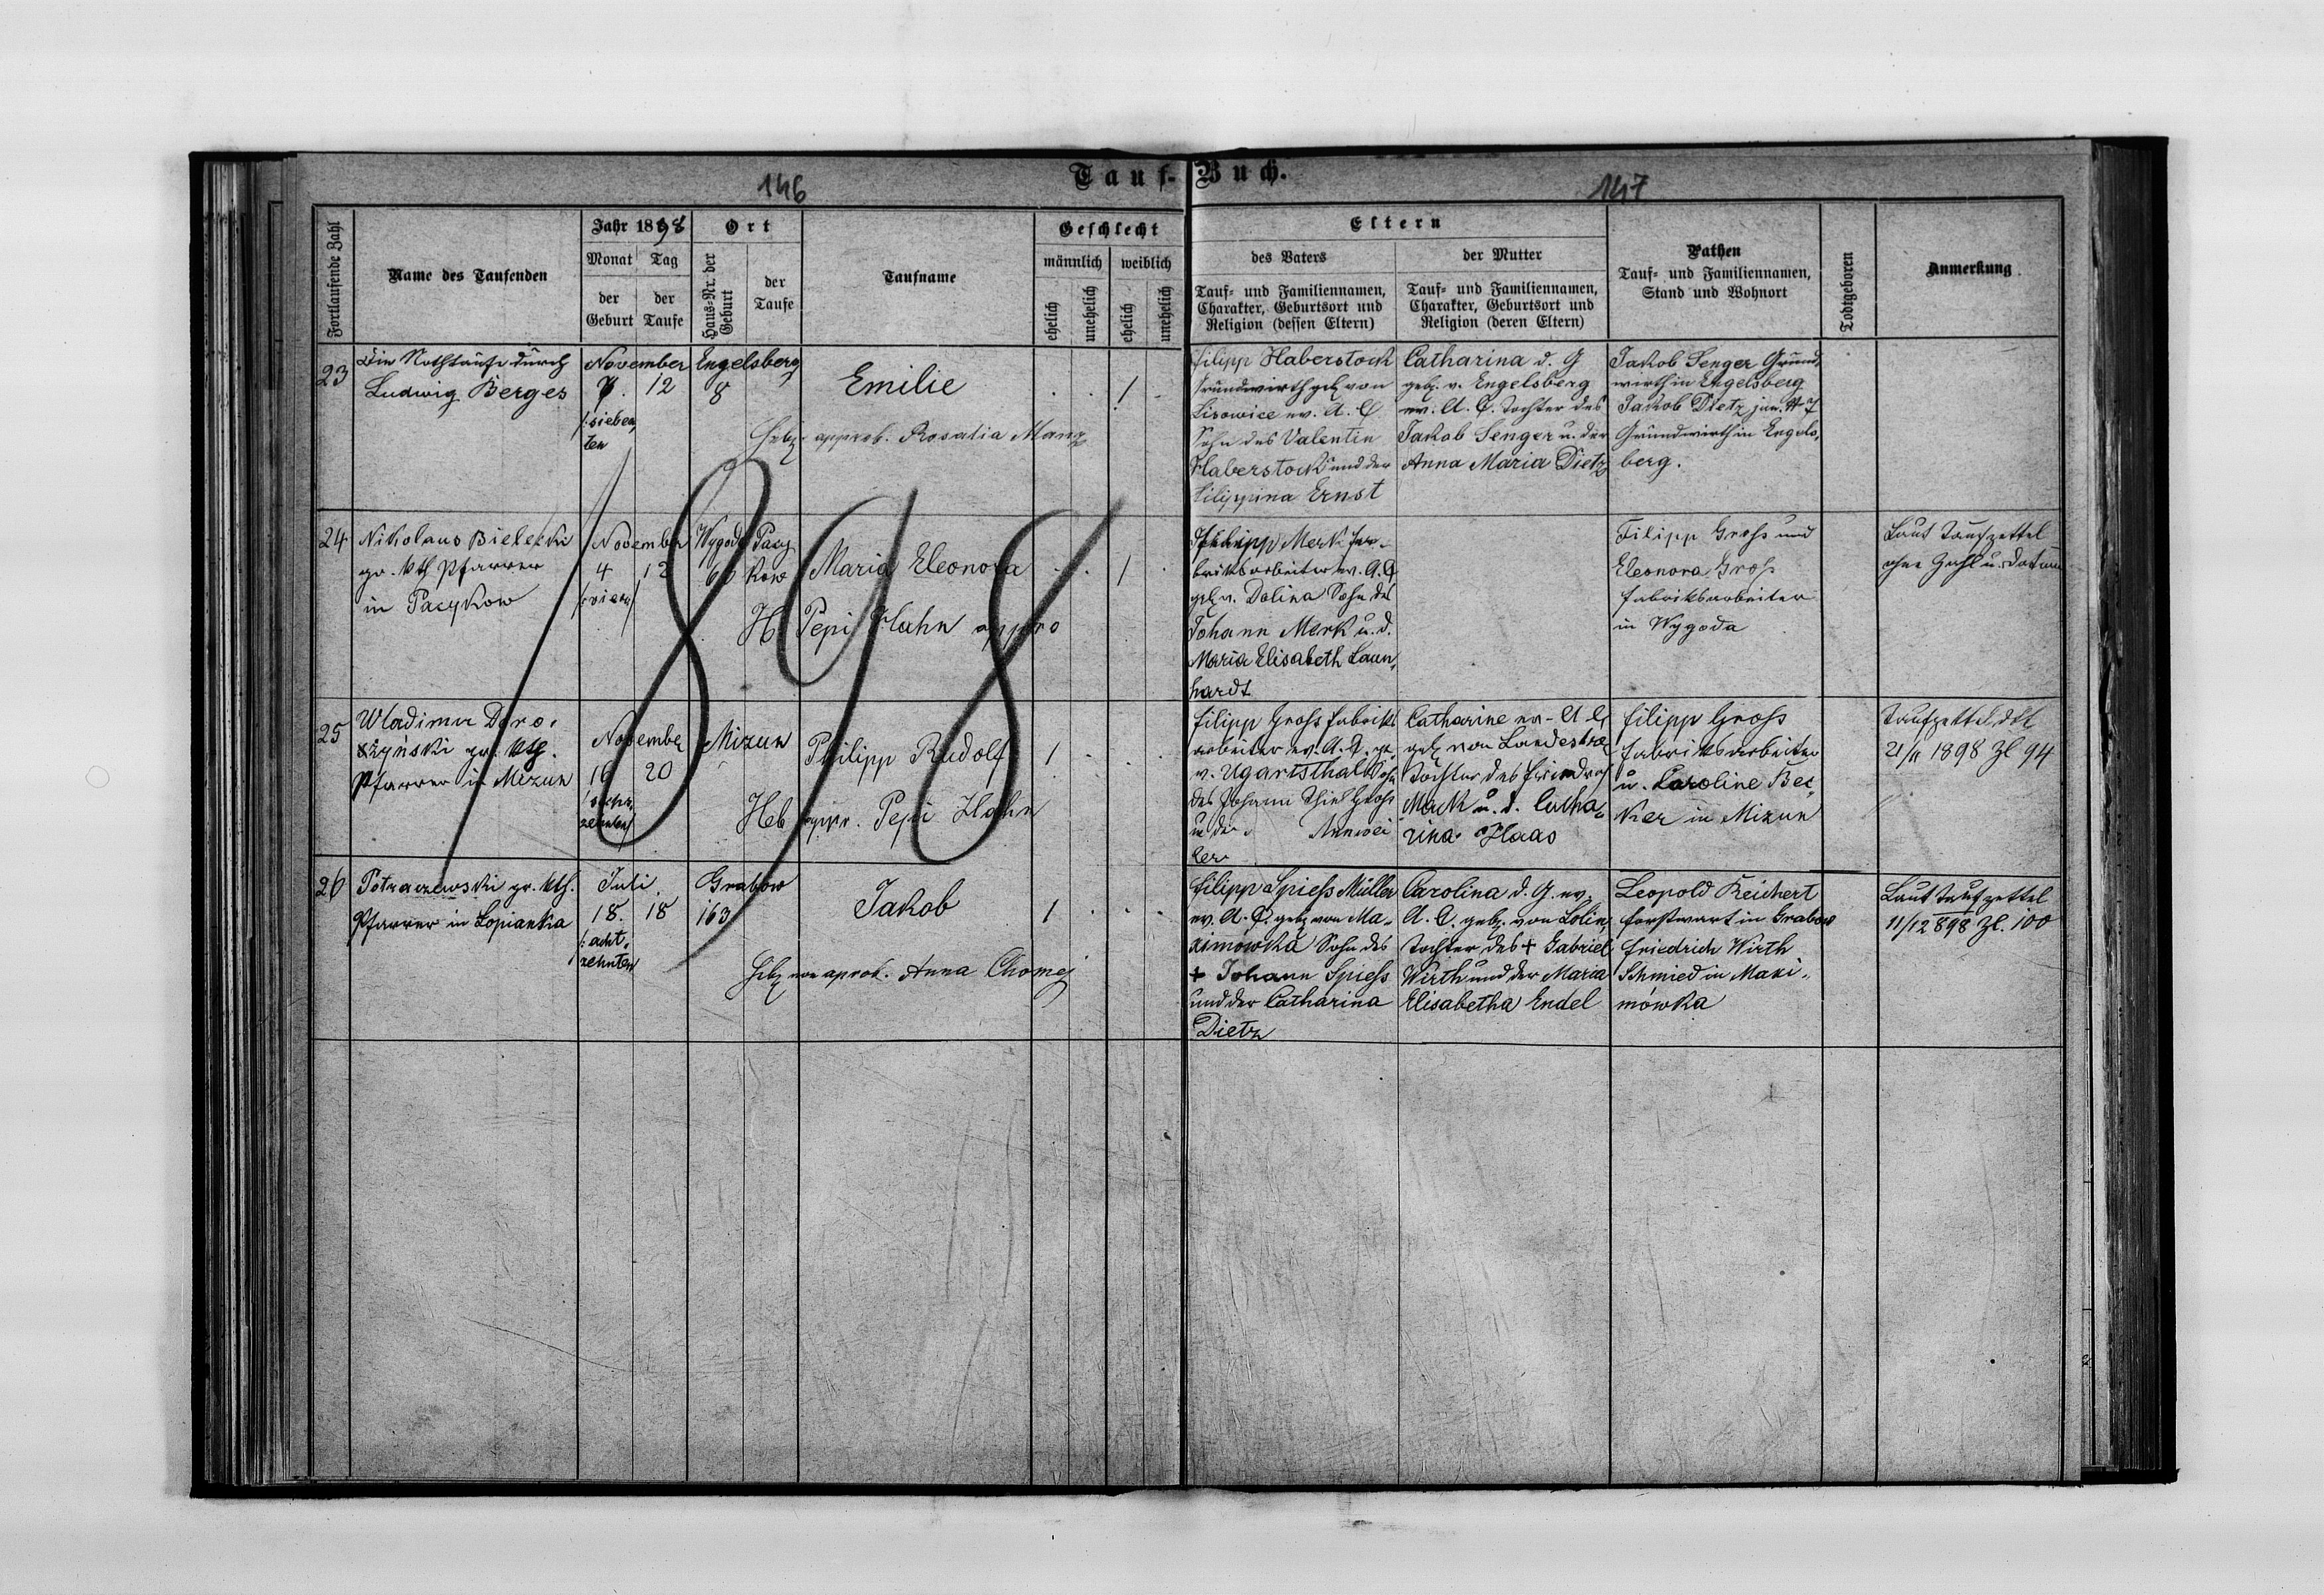 146
Tauf-Buch.
147
Fortlaufende Zahl
Name des Taufenden
Jahr 1898
Monat Tag
der Geburt
der Taufe
Ort
Haus-Nr. der Geburt
der Taufe
Taufname
Geschlecht
männlich weiblich
ehelich
unehelich
ehelich
unehelich
Eltern
des Vaters
Tauf- und Familiennamen,
Charakter, Geburtsort und
Religion (dessen Eltern)
der Mutter
Tauf- und Familiennamen,
Charakter, Geburtsort und
Religion (deren Eltern)
Pathen
Tauf- und Familiennamen,
Stand und Wohnort
Todtgeboren
Anmerkung
23
Die Nothtaufe durch
Ludwig Berges
November
7. 12
/:sieben
ten
Engelsberg
8
Emilie
1
Heb. approb. Rosalia Manz
Filipp Haberstock
Grundwirth geb. von
Lisowice ev. A. C.
Sohn des Valentin
Haberstock und der
Filippina Ernst
Catharina d. G
geb. v. Engelsberg
ev. A. C. Tochter des
Jakob Senger u. der
Anna Maria Dietz
Jakob Senger Grund
wirth in Engelsberg
Jakob Dietz jun.
Grundwirth in Engels
berg.
24
Nikolaus Bielecki
gr. kth Pfarrer
in Pacykow
November
4 12
/:vier/
Wygoda
Pacy
kow
Maria Eleonora
1
H Pepi Hahn appro
Philipp Merk Fa-
briksarbeiter ev. A. C
geb. v. Dolina Sohn des
Johann Merk u. d.
Maria Elisabeth Laun,
hardt
Filipp Gross und
Eleonora Gross
Fabriksarbeiter
in Wygoda
Laut Taufzettel
ohne Zahl u. Datum
25
Wladimir Doro-
żyński gr. kth.
Pfarrer in Mizun
November
16 20
/:sech
zehnten/
Mizun
Philipp Rudolf
1
Heb appr. Pepi Hahn
Filipp Gross Fabriks
arbeiter ev. A. C. ge
v. Ugartsthal Sohn
des Johann Thiel Gross
u der Annwei
ler
Catharine ev. A. C
geb von Landestreu
Tochter des Friedrich
Mack u. d. Catha
rina Haas
Filipp Gross
Fabriksarbeiter
u. Caroline Bec,
ker in Mizun
Taufzettel ddt
21/11 1898 Zl 94
26
Potraczewski gr. kth.
Pfarrer in Lopianka
Juli
18. 18
/:acht,
zehnten
Grabow
163
Jakob
1
Heb non aprob. Anna Chomej
Filipp Spiess Müller
ev. A. C. geb. von Ma-
ximowka Sohn des
+ Johann Spiess
und der Catharina
Dietz
Carolina d. G. ev.
A. C. geb. von Dolina
Tochter des + Gabriel
Wirth und der Maria
Elisabetha Endel
Leopold Reichert
Forstwart in Grabow
Friedrich Wirth
Schmied in Maxi-
mówka
Laut Taufzettel
11/12 898 Zl. 100
1898